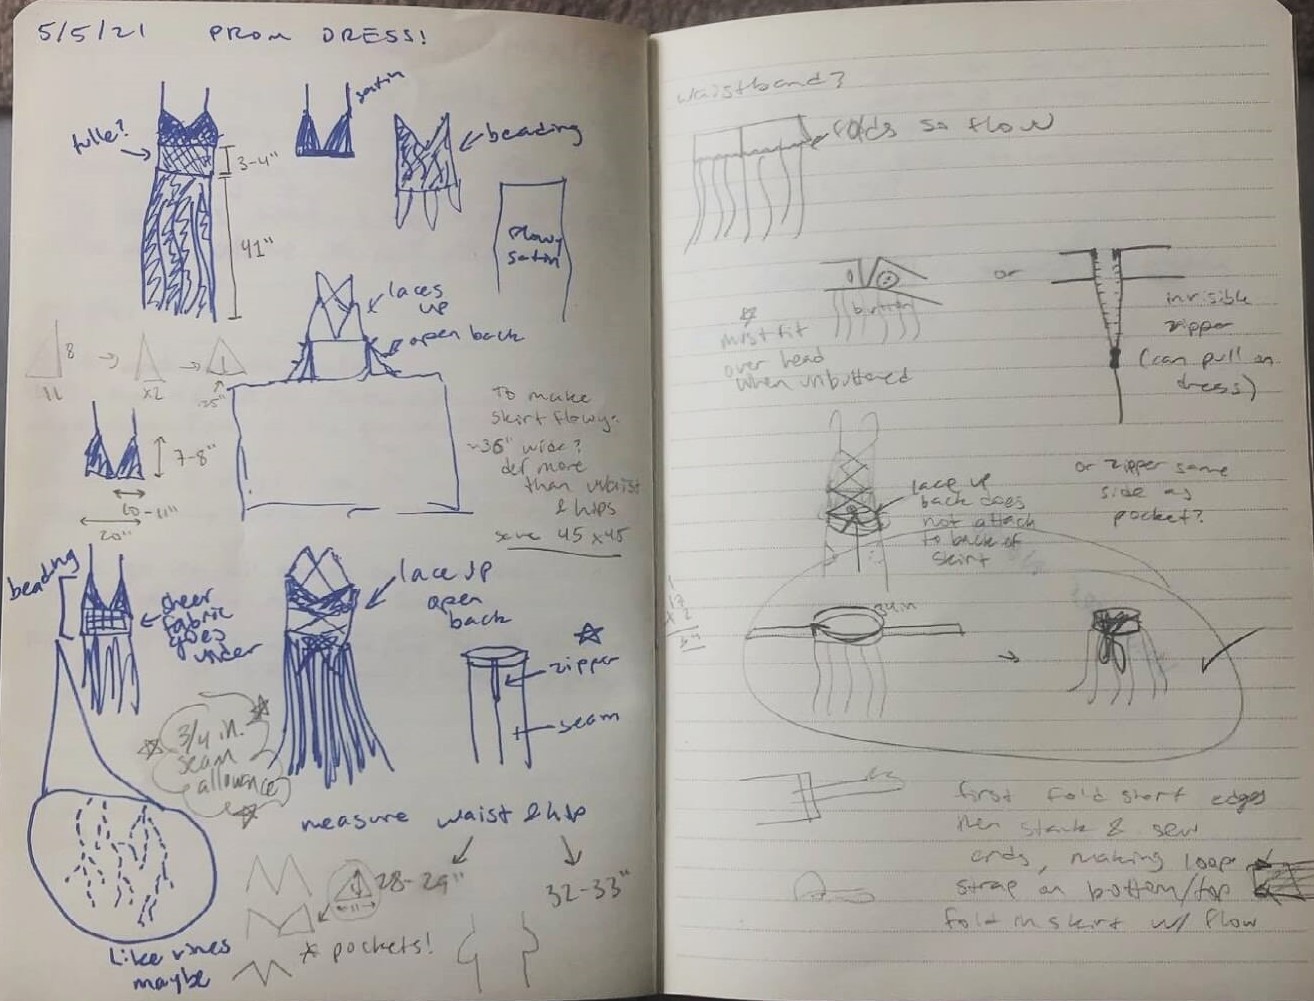 5/5/21 PROM DRESS!
satin
tulle?
3-4"
beading
41"
flowy
satin
laces
up
open back
8
11
x2
.25"
To make
skirt flowy:
~36" wide?
def more
than waist
& hips
save 45 x 45
7-8"
10-11"
20"
beading
sheer
fabric
goes
under
lace up
open
back
zipper
seam
3/4 in.
seam
allowance
measure waist & hip
28-29"
32-33"
11
* pockets!
Like vines
maybe
waistband?
folds so flow
button
or
invisible
zipper
(can pull on
dress)
must fit
over head
when unbuttoned
lace up
back does
not attach
to back of
skirt
or zipper same
side as
pocket?
17
x 2
34
34in
first fold short edges
then stack & sew
ends, making loop
strap on bottom/top
fold in skirt w/ flow